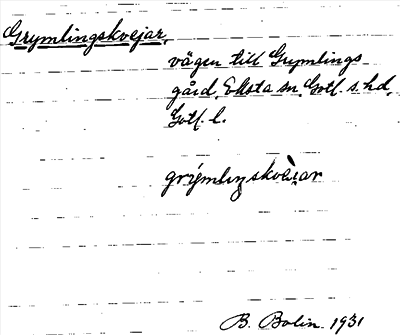 Grymlingskvejar,
vägen till Grymlings
gård, Eksta sn, Gotl. s. hd,
Gotl. l.
grýmlıŋskvèi̯ar
B. Bolin. 1931